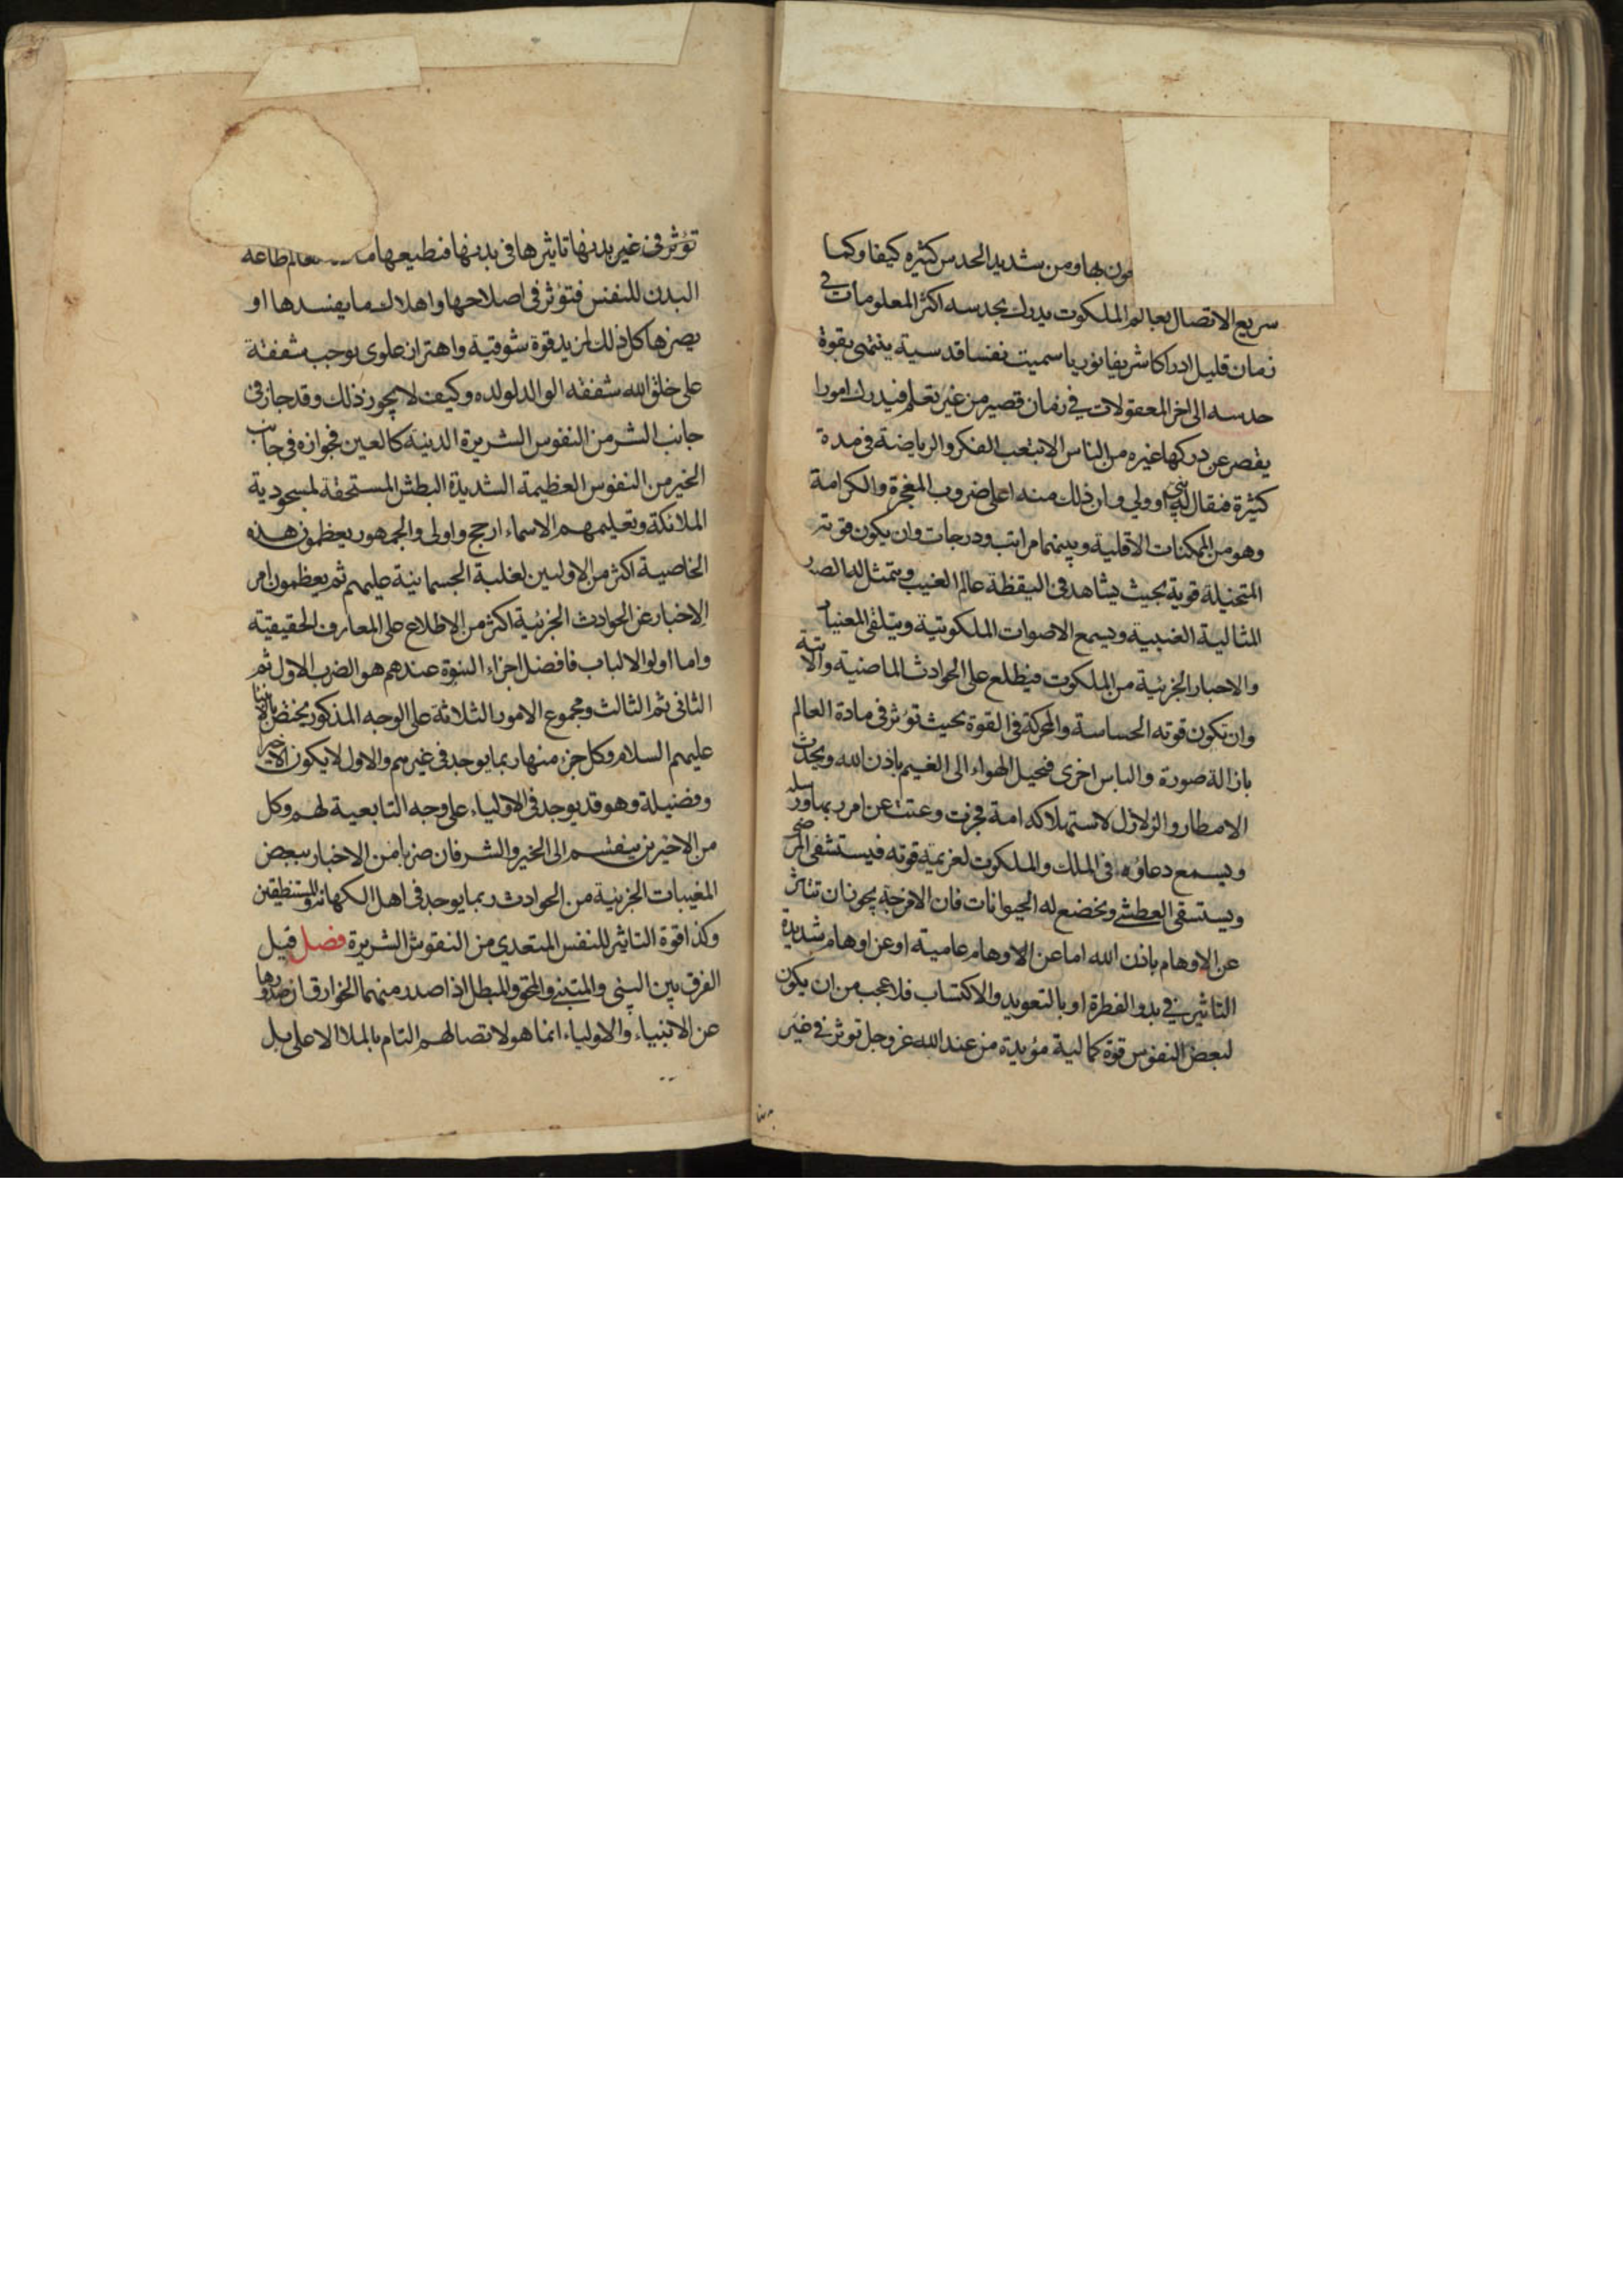 مون بها ومن شديد الحدس كثيره كيفا وكما
سريع الاتصال بعالم الملكوت يدرك بحدسه اكثر المعلومات في
زمان قليل ادراكا شريفا نوريا سميت نفسا قدسية ينتهى بقوة
حدسه الى اخر المعقولات في زمان قصير من غير تعلم فيدرك امورا
يقصر عن دركها غيره من الناس الا بتعب الفكر والرياضة في مدة
كثيرة فيقال له نبي او ولي وان ذلك منه اعلى ضروب المعجزة والكرامة
وهو من الممكنات الاقلية وبينهما مراتب ودرجات وان يكون قوته
المتخيلة قوية بحيث يشاهد في اليقظة عالم الغيب ويتمثل له الصور
المثالية الغيبية ويسمع الاصوات الملكوتية ويتلقى المغيبات
والاخبار الجزئية من الملكوت فيطلع على الحوادث الماضية والاتية
وان تكون قوته الحساسة والمحركة في القوة بحيث تؤثر في مادة العالم
بازالة صورة والباس اخرى فيحيل الهواء الى الغيم باذن الله ويحدث
الامطار والزلازل لاستهلاكه امة فجرت وعتت عن امر ربها ورسله
ويسمع دعاؤه في الملك والملكوت لعزيمة قوته فيستشفى المرضى
ويستسقى العطشى ويخضع له الحيوانات فان الامزجة يجوز ان تتاثر
عن الاوهام باذن الله اما عن الاوهام عامية او عن اوهام شديدة
التاثير في بدو الفطرة او بالتعويد والاكتساب فلا عجب من ان يكون
لبعض النفوس قوة كمالية مؤيدة من عند الله عز وجل توثر في غير
تؤثر في غير بدنها تاثيرها في بدنها فيطيعها العالم طاعه
البدن للنفس فتؤثر في اصلاحها واهلاك ما يفسدها او
يضرها كل ذلك لمزيد قوة شوقية واهتزاز علوى يوجب شفقة
على خلق الله شفقه الوالد لولده وكيف لا يجوز ذلك وقد جاز في
جانب الشر من النفوس الشريرة الدنية كالعين فجوازه في جانب
الخير من النفوس العظيمة الشديدة البطش المستحقة لمسجودية
الملائكة وتعليمهم الاسماء ارجح واولى والجمهور يعظمون هذه
الخاصية اكثر من الاوليين لغلبة الجسمانية عليهم ثم يعظمون امر
الاخبار عن الحوادث الجزئية اكثر من الاطلاع على المعارف الحقيقية
واما اولو الالباب فافضل اجزاء النبوة عندهم هو الضرب الاول ثم
الثانى ثم الثالث ومجموع الامور الثلاثة على الوجه المذكور يختص بالانبياء
عليهم السلام وكل جزء منها ربما يوجد في غيرهم والاول لا يكون الا خير
وفضيلة وهو قد يوجد في الاولياء على وجه التابعية لهم وكل
من الاخيرين ينقسم الى الخير والشر فان ضربا من الاخبار ببعض
المغيبات الجزئية من الحوادث ربما يوجد في اهل الكهانة والمستنطقين
وكذا قوة التاثير للنفس المتعدى من النفوس الشريرة فصل قيل
الفرق بين النبى والمتنبى والمحق والمبطل اذا صدر منهما الخوارق ان صدورها
عن الانبياء والاولياء انما هو لاتصالهم التام بالملا الاعلى بل